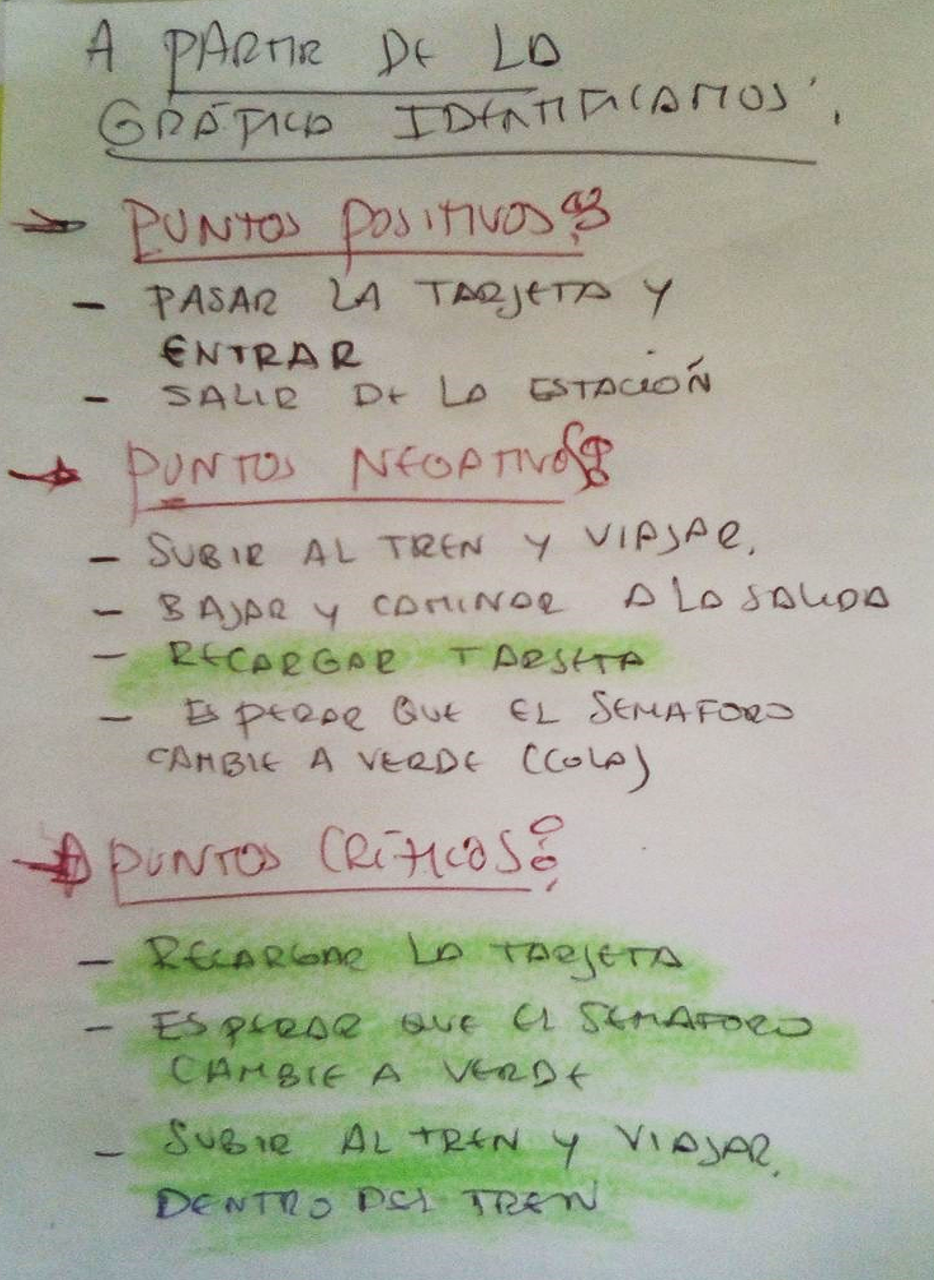 A PARTIR DE LA
GRÁFICA IDENTIFICAMOS:
PUNTOS POSITIVOS:
- PASAR LA TARJETA Y
ENTRAR
- SALIR DE LA ESTACIÓN
PUNTOS NEGATIVOS:
- SUBIR AL TREN Y VIAJAR.
- BAJAR Y CAMINAR A LA SALIDA
- RECARGAR TARJETA
- ESPERAR QUE EL SEMAFORO
CAMBIE A VERDE (COLA)
PUNTOS CRÍTICOS:
- RECARGAR LA TARJETA
- ESPERAR QUE EL SEMAFORO
CAMBIE A VERDE
- SUBIR AL TREN Y VIAJAR.
DENTRO DEL TREN